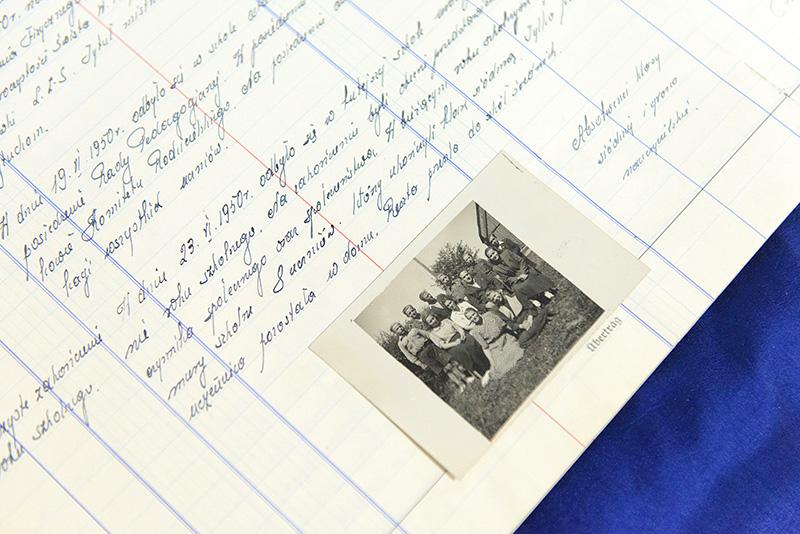 L.Z.S. Tytuł
W dniu 19.VI.1950r. odbyło się w szkole
posiedzenie Rady Pedagogicznej. W posiedzeniu
kowie Komitetu Rodzicielskiego. Na posiedzeniu
kacji wszystkich uczniów.
W dniu 23.VI.1950r. odbyło się w tutejszej szkole
nie roku szkolnego. Na zakończeniu byli obecni
czynnika społecznego oraz społeczeństwa. W bieżącym roku szkolnym
mury szkolne 8 uczniów, którzy ukończyli klasę siódmą. Tylko
uczennica pozostała w domu. Reszta poszła do szkół średnich.
zyste zakończenie
roku szkolnego.
Absolwenci klasy
siódmej i grono
nauczycielskie.
Übertrag